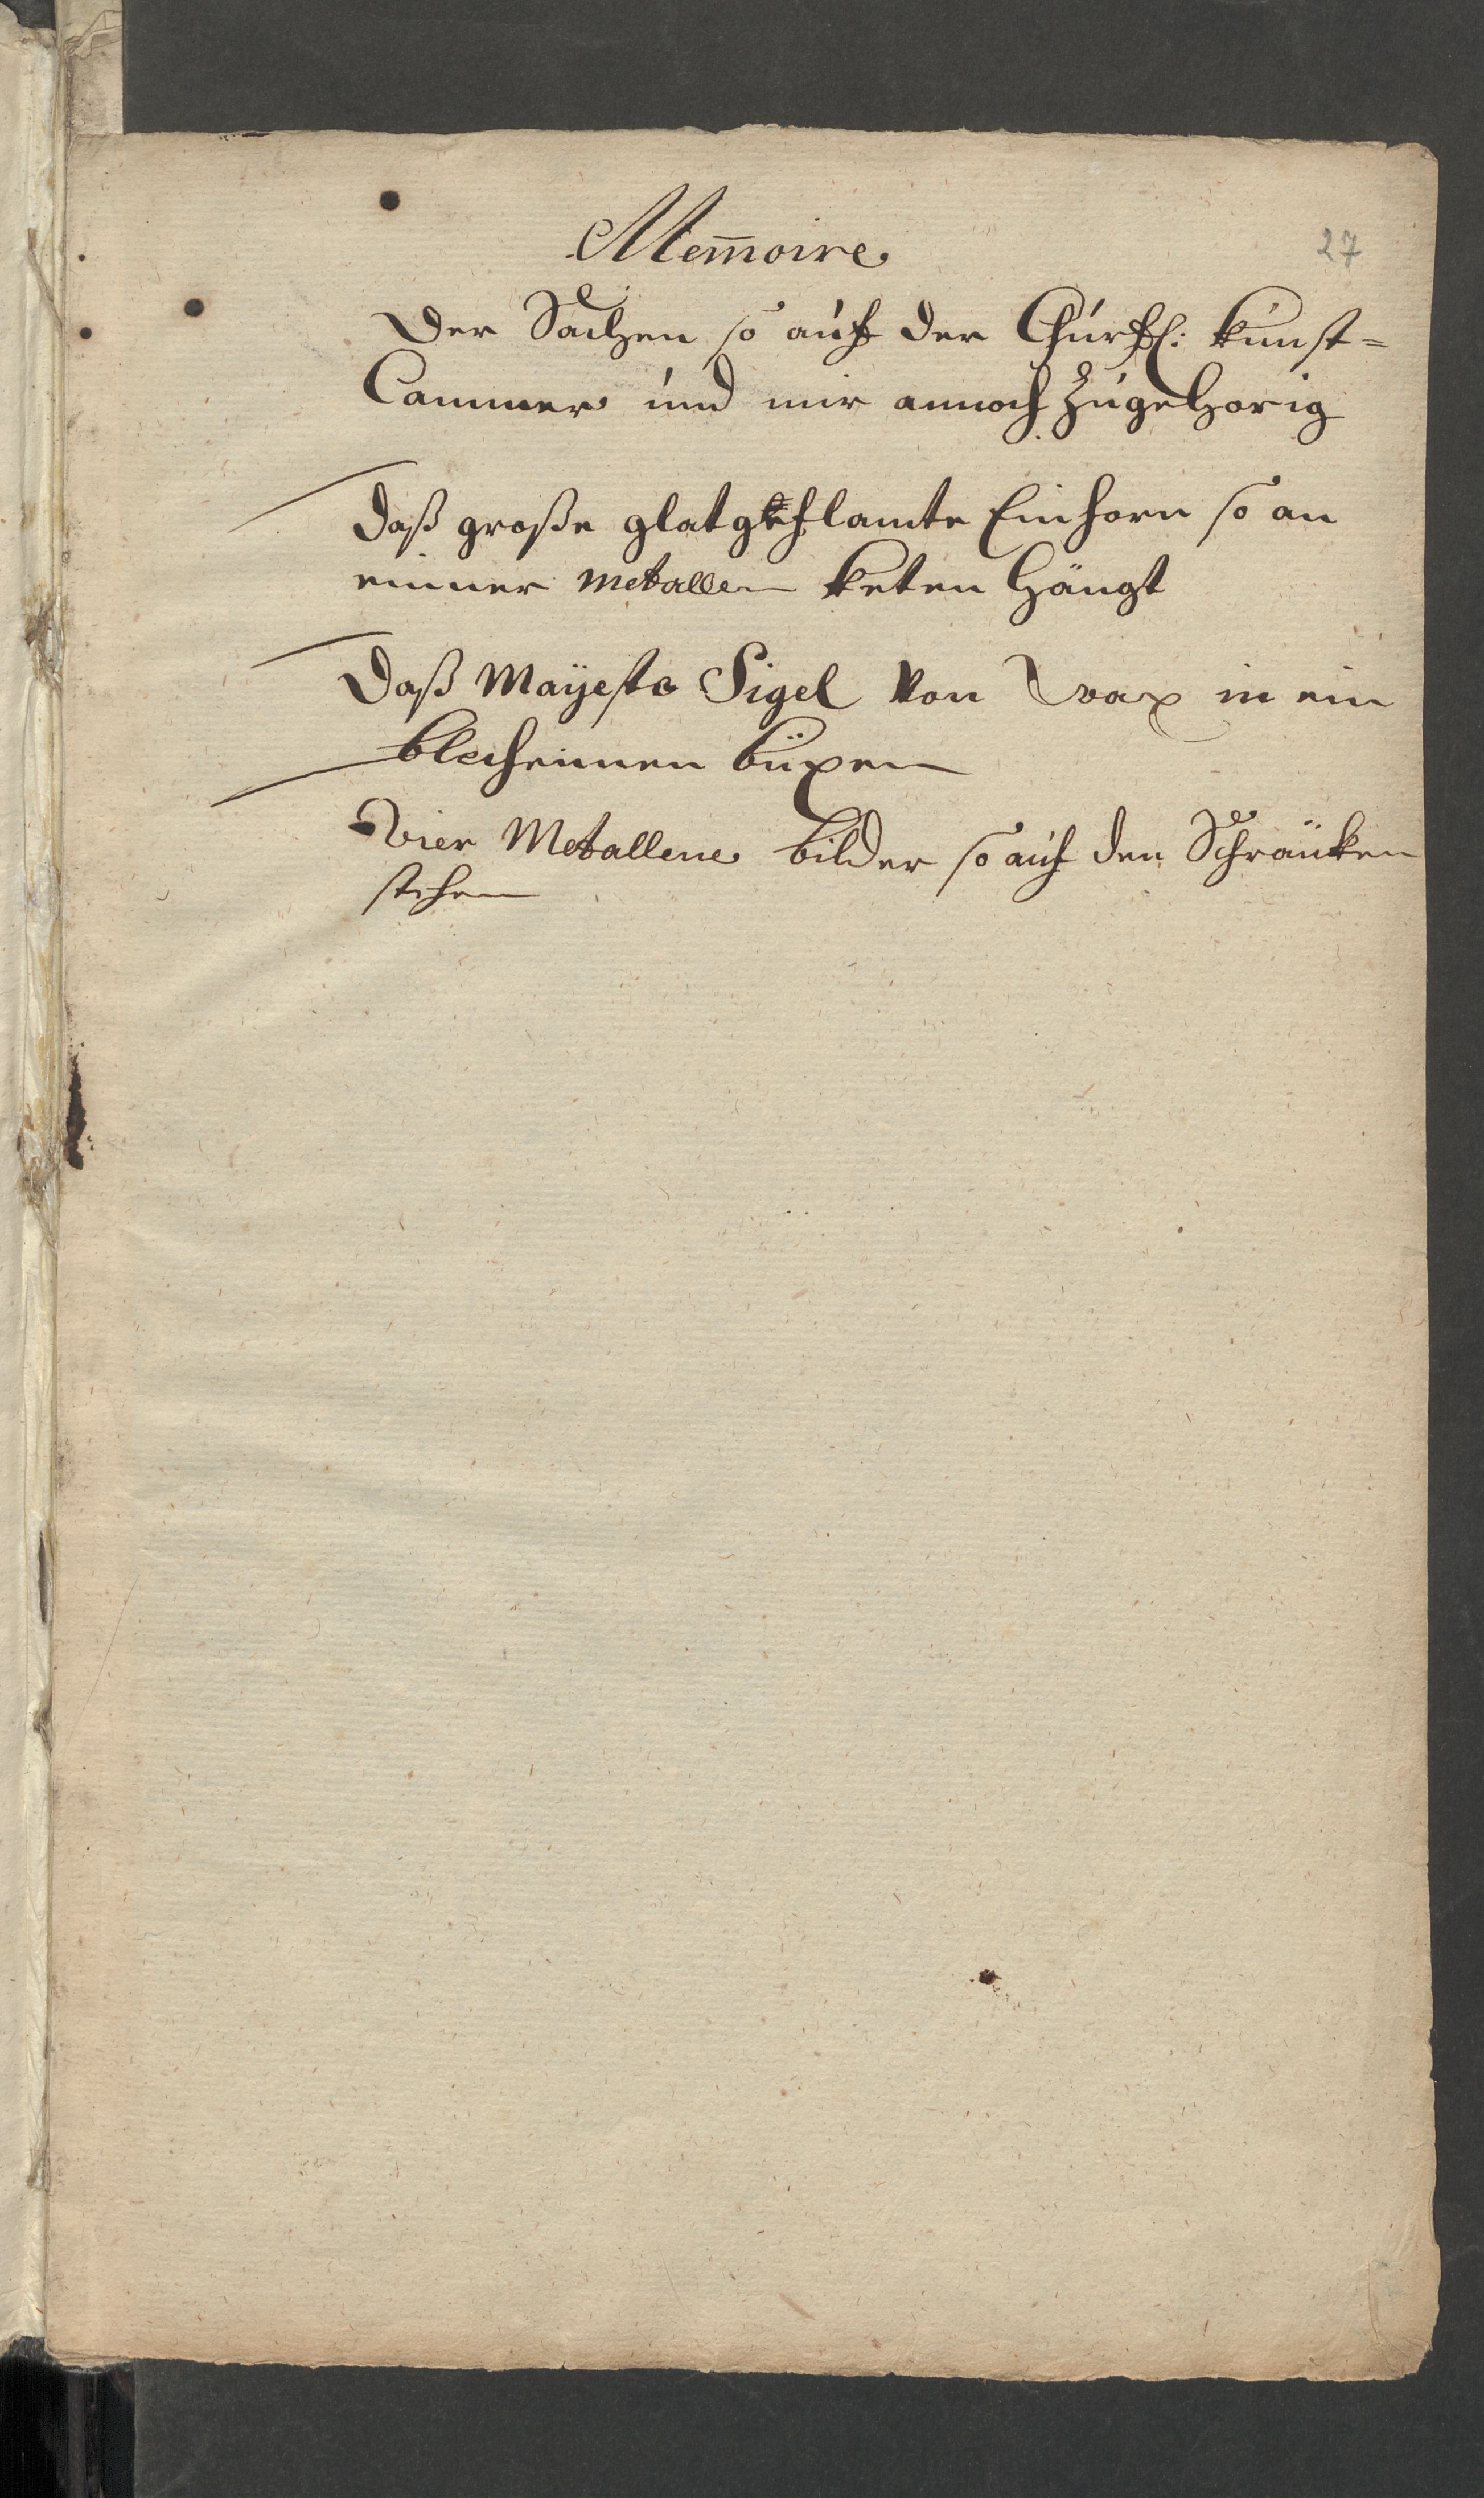 Mem̄oire
27
Der Sachen so auf der Churfl: kunst=
Cammer und mir annoch Zugehorig
Daß große glatgeflamte Einhorn so an
einner metallen keten hängt
Daß Mayestä Sigel von Wax in ein
blecheinnen büxen
Vier Metallene bilder so auf den Schräncken
stehen